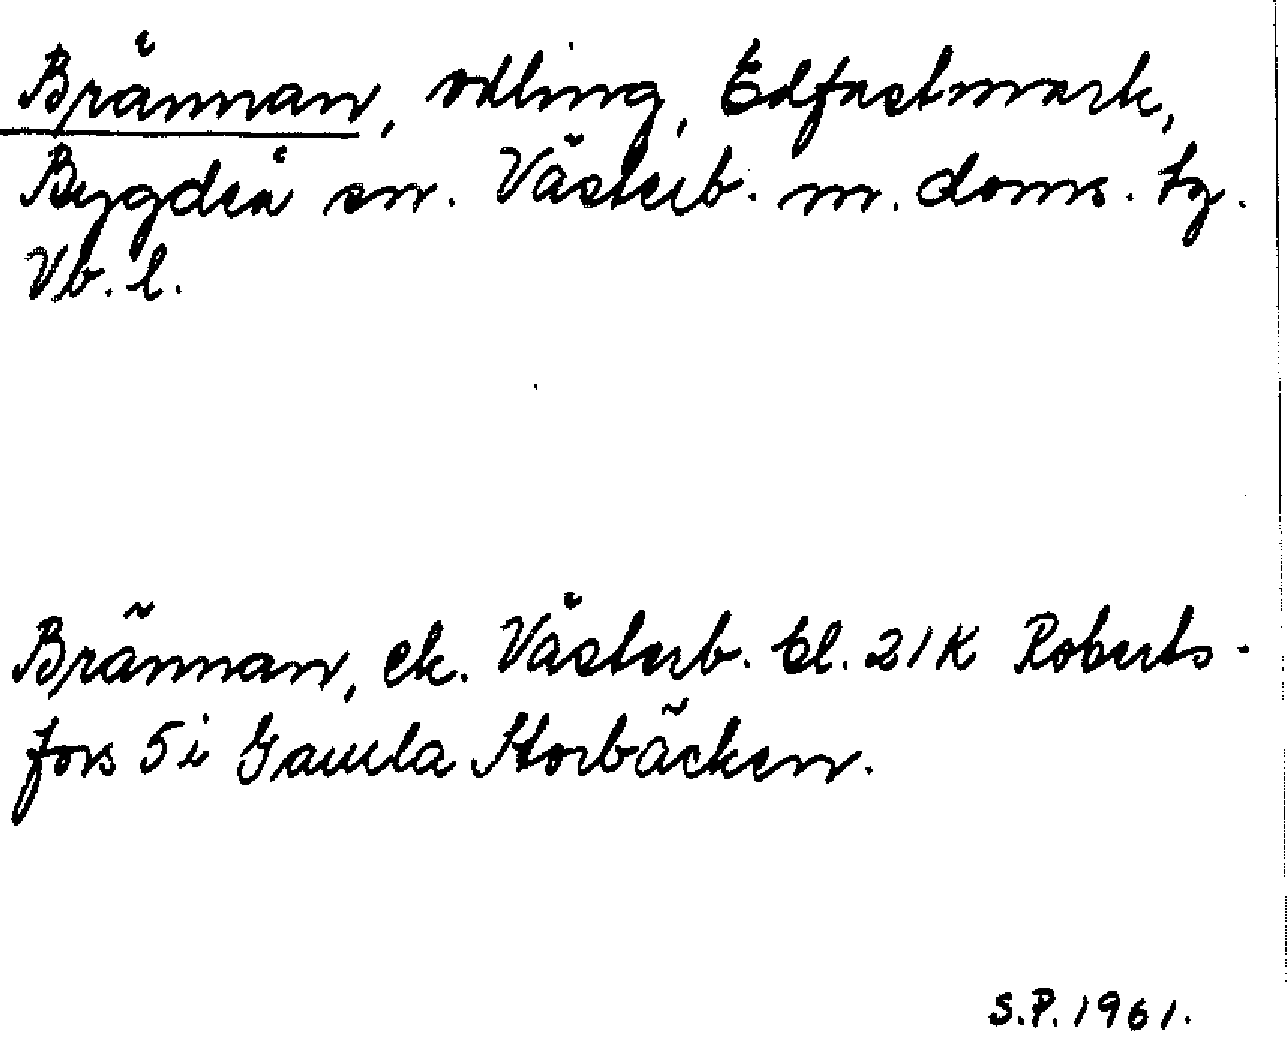 Brännan, odling, Edfastmark,
Bygdeå sn. Västerb. m. doms. tg.
Vb. l.
Brännan, ek. Västerb. bl. 21K Roberts-
fors 5i Gamla Storbäcken.
S.P. 1961.